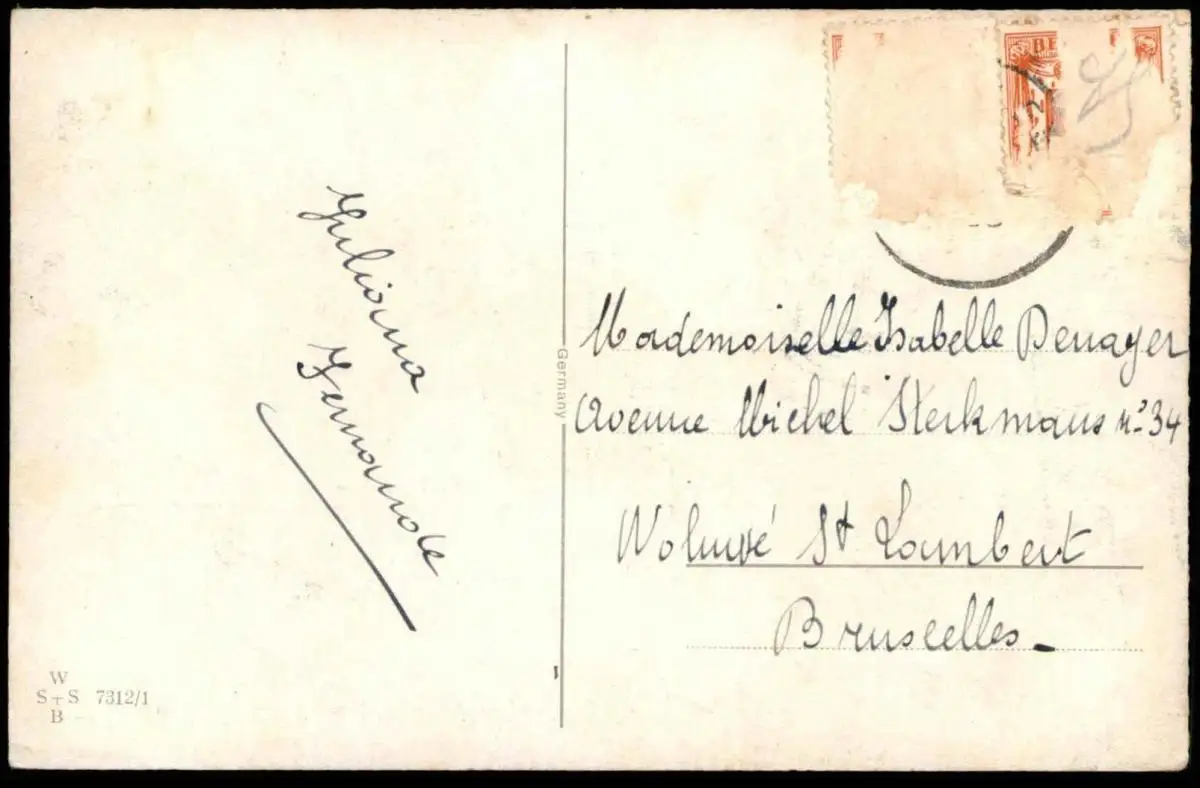 Juliana
Fernande
W
S+S 7312/1
B
Germany
BE
Mademoiselle Isabelle Denayer
Avenue Michel Sterkmans no 34
Woluvé St Lambert
Bruxelles